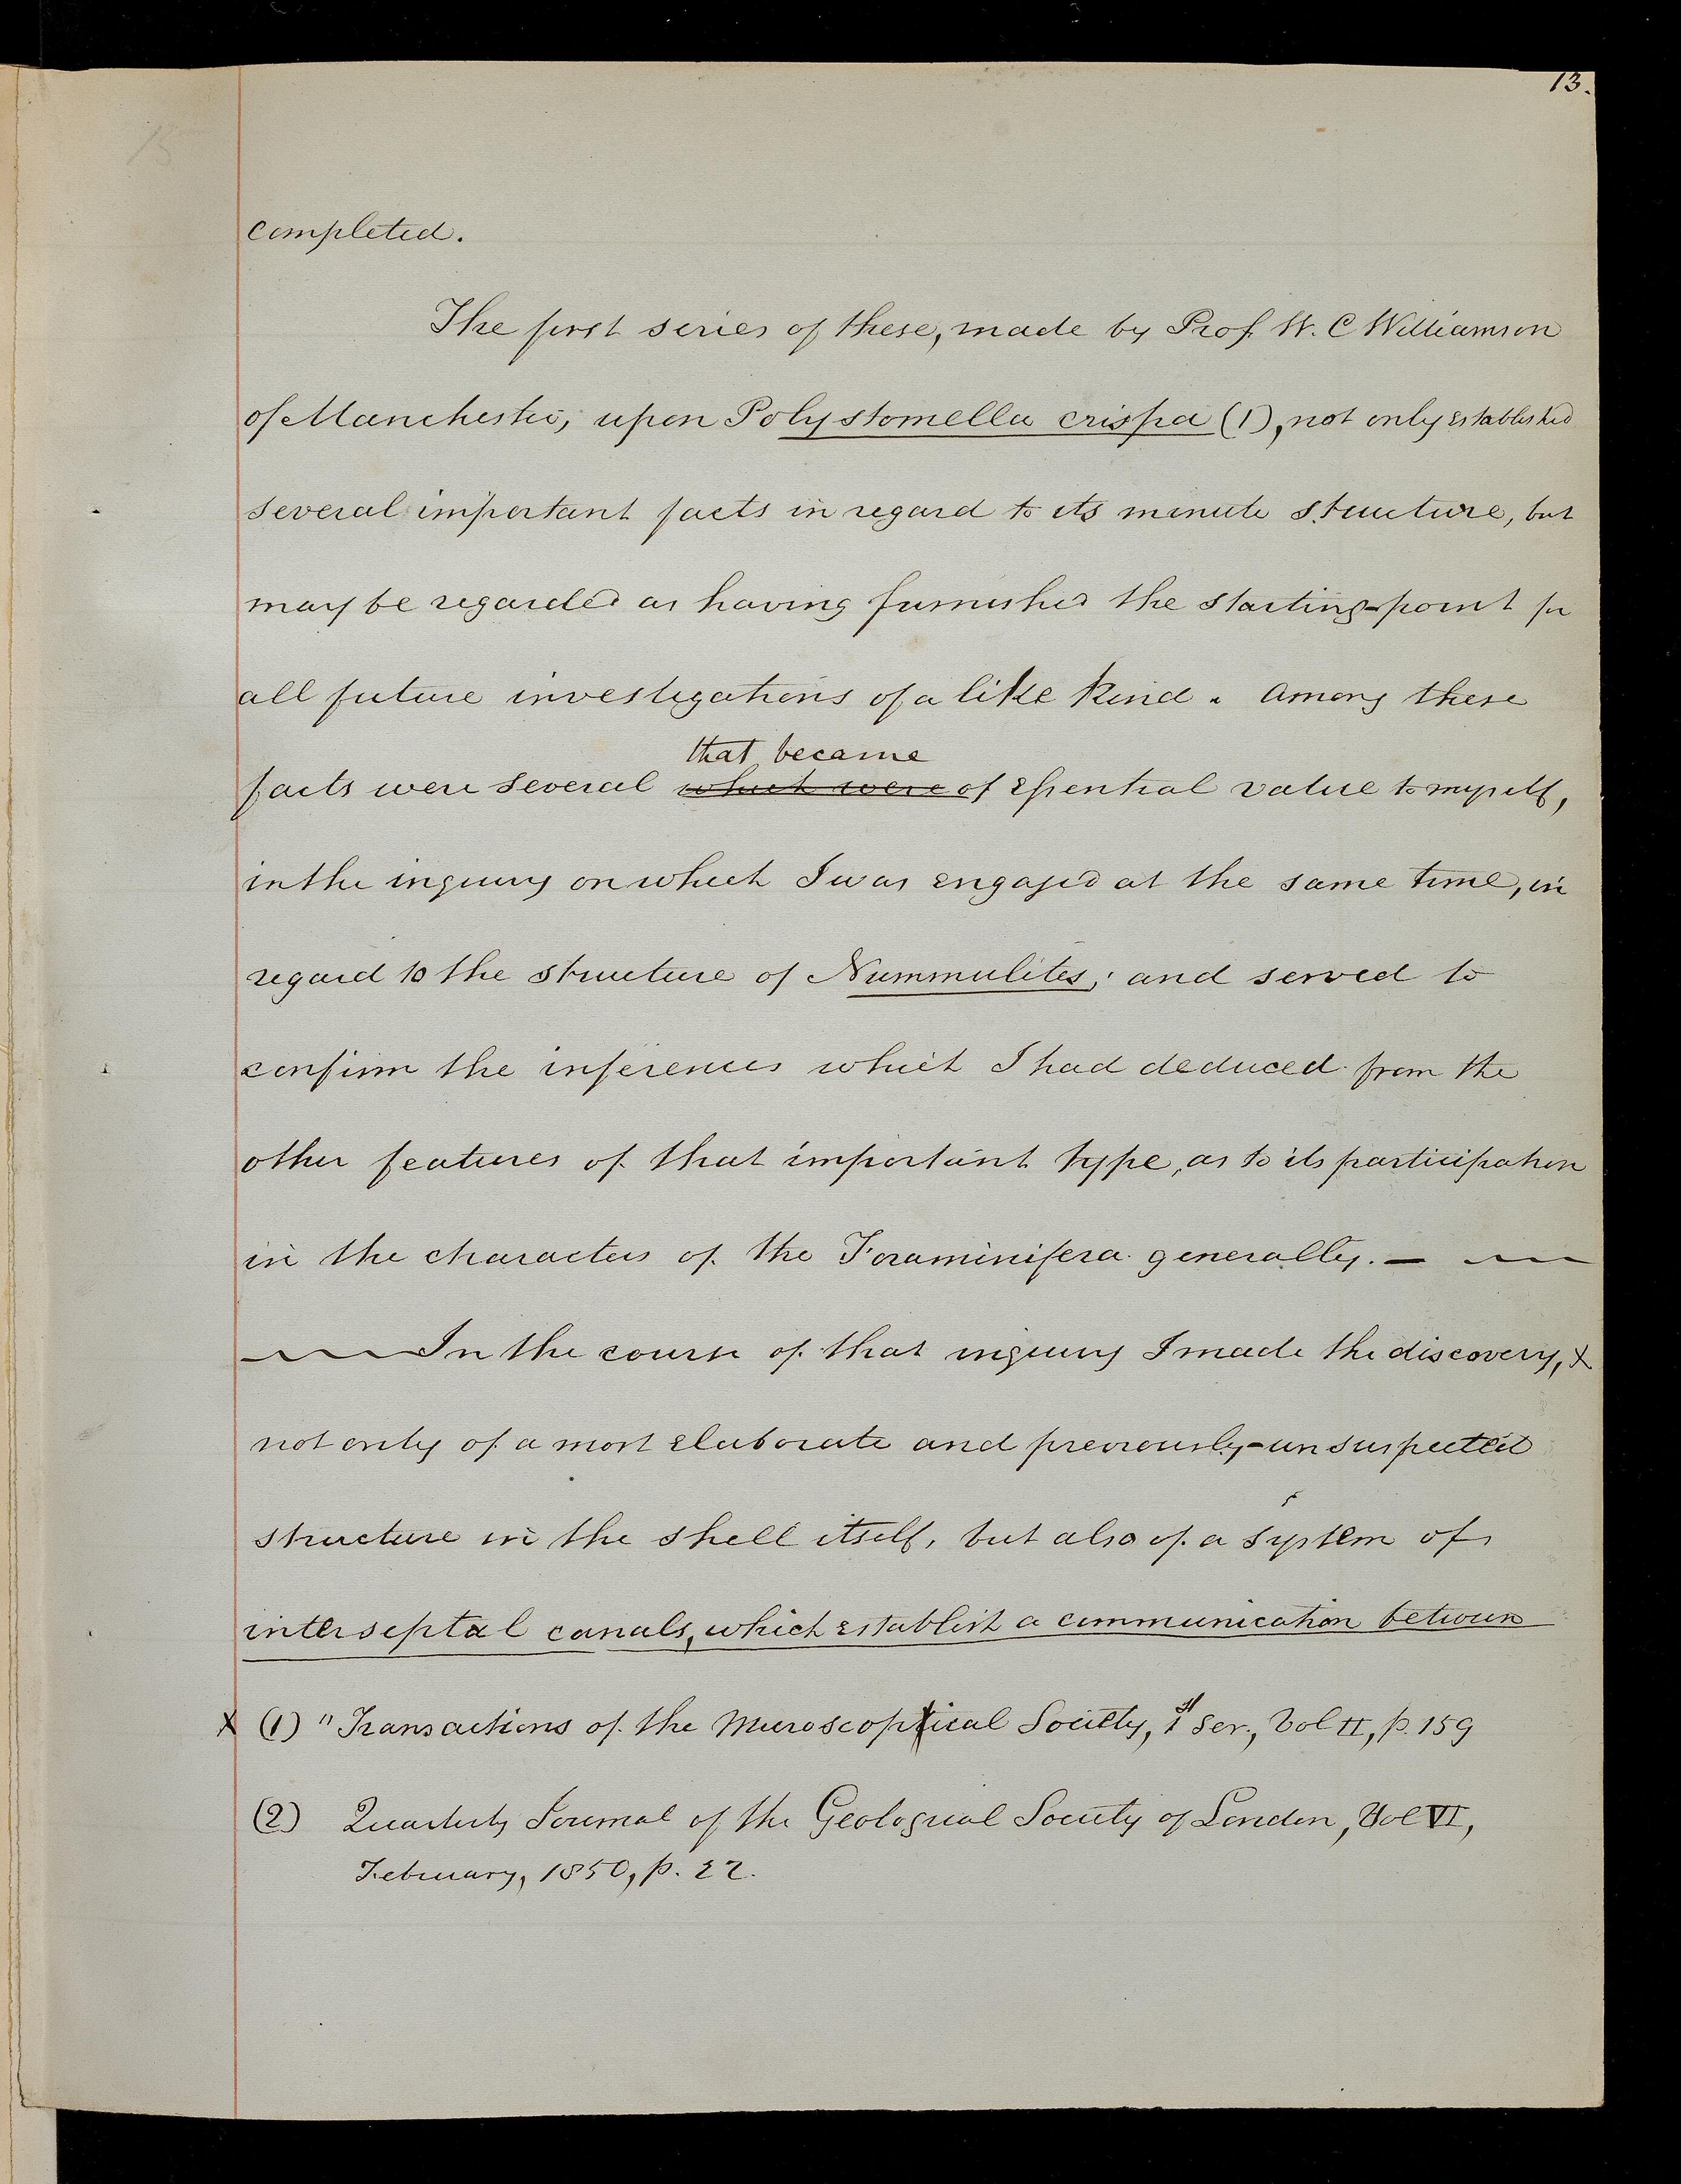 13.
15
completed.
The first series of these, made by Prof. W. C Williamson
of Manchester, upon Polystomella crispa (1), not only established
several important facts in regard to its minute structure, but
may be regarded as having furnished the starting-point for
all future investigations of a like kind. Among these
that became
facts were several which were of essential value to myself,
in the inquiry on which I was engaged at the same time, in
regard to the structure of Nummulites; and served to
confirm the inferences which I had deduced from the
other features of that important type, as to its participation
in the characters of the Foraminifera generally. —
In the course of that inquiry I made the discovery, X
not only of a most elaborate and previously-unsuspected
structure in the shell itself, but also of a system of
interseptal canals, which establish a communication between
X (1) "Transactions of the Microscopical Society, 1st Ser., Vol II, p. 159
(2) Quarterly Journal of the Geological Society of London, Vol VI,
February, 1850, p. 22.